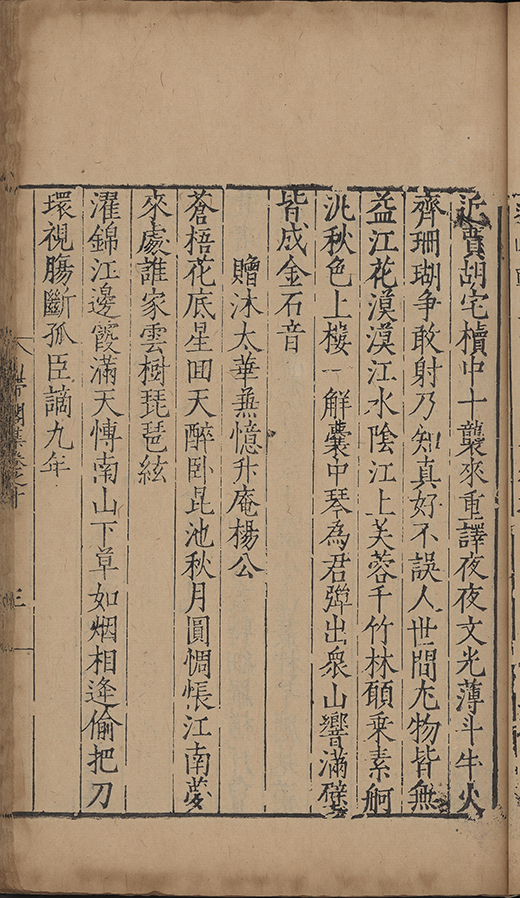 近賣胡宅櫝中十襲來重譯夜夜文光薄斗牛火
齊珊瑚爭敢射乃知真好不誤人世間尤物皆無
益江花漠漠江水陰江上芙蓉千竹林願乗素舸
泝秋色上樓一解囊中琴為君彈出衆山響滿壁
皆成金石音
贈沐太華蒹憶升庵楊公
蒼梧花底星回天醉卧昆池秋月圓惆悵江南夢
來處誰家雲樹琵琶絃
濯錦江邊霞滿天慱南山下草如烟相逢偷把刀
環視膓斷孤臣謫九年
三